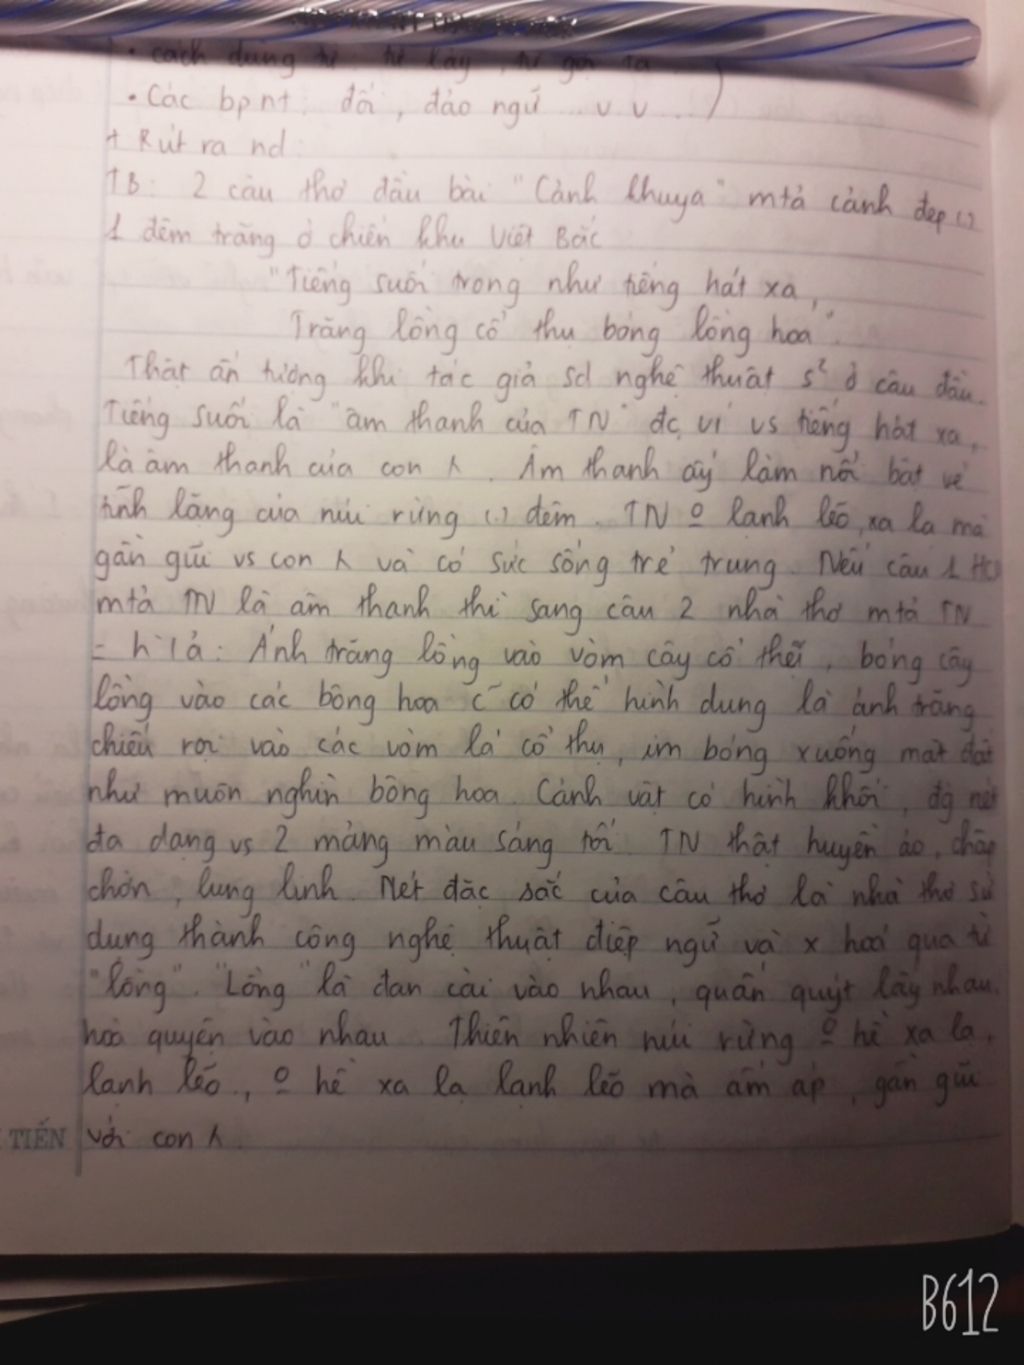 • cách dùng từ: từ láy, từ gợi tả
• Các bpnt: đối, đảo ngữ ... v.v...)
+ Rút ra nd:
TB: 2 câu thơ đầu bài "Cảnh khuya" mtả cảnh đẹp (.)
1 đêm trăng ở chiến khu Việt Bắc
"Tiếng suối trong như tiếng hát xa,
Trăng lồng cổ thụ bóng lồng hoa".
Thật ấn tượng khi tác giả sd nghệ thuật s² ở câu đầu.
Tiếng suối là "âm thanh của TN" đc ví vs tiếng hát xa,
là âm thanh của con λ. Âm thanh ấy làm nổi bật vẻ
tĩnh lặng của núi rừng (.) đêm. TN o lạnh lẽo, xa lạ mà
gần gũi vs con λ và có sức sống trẻ trung. Nếu câu 1 HCM
mtả TN là âm thanh thì sang câu 2 nhà thơ mtả TN
= h`1ả: Ánh trăng lồng vào vòm cây cổ thụ, bóng cây
lồng vào các bông hoa c~ có thể hình dung là ánh trăng
chiếu rọi vào các vòm lá cổ thụ, im bóng xuống mặt đất
như muôn nghìn bông hoa. Cảnh vật có hình khối, đg nét
đa dạng vs 2 mảng màu sáng tối. TN thật huyền ảo, chập
chờn, lung linh. Nét đặc sắc của câu thơ là nhà thơ sử
dụng thành công nghệ thuật điệp ngữ và x hoá qua từ
"lồng". "Lồng" là đan cài vào nhau, quấn quýt lấy nhau,
hoà quyện vào nhau. Thiên nhiên núi rừng o hề xa lạ,
lạnh lẽo, o hề xa lạ lạnh lẽo mà ấm áp, gần gũi
với con λ.
TIẾN
B612